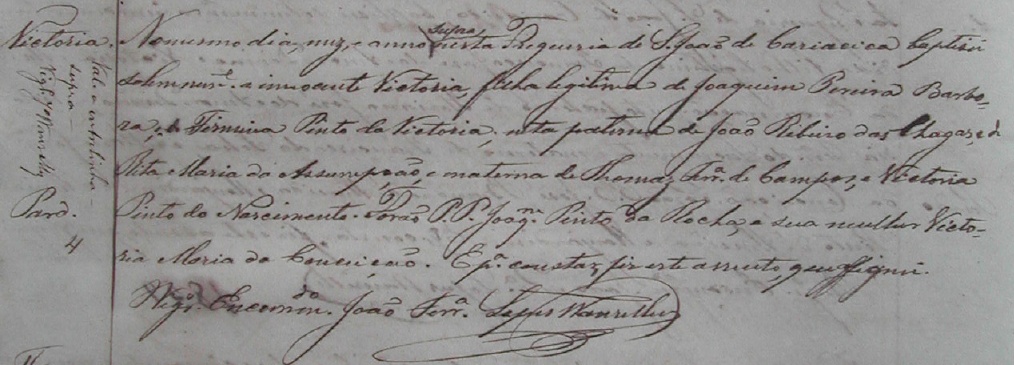 Victoria.
Vale a entrelinha
supra
Vigr.º
Pard.
4
No mesmo dia, mez, e anno supra nesta Freguezia de S. João de Cariacica baptisei
solemnem.e a innocente Victoria, filha legitima de Joaquim Pereira Barbo-
za, e de Firmina Pinto da Victoria, neta paterna de João Ribeiro das Chagas, e de
Rita Maria da Assumpção, e materna de Thomaz Frr.ª de Campos, e Victoria
Pinto do Nascimento. Forão P.P. Joaq.m Pinto da Rocha, e sua mulher Victo-
ria Maria da Conceição. E p.ª constar, fiz este assento, que assignei.
Vigr.º Encomm.do João Ferr.ª Lopes Wanzeller